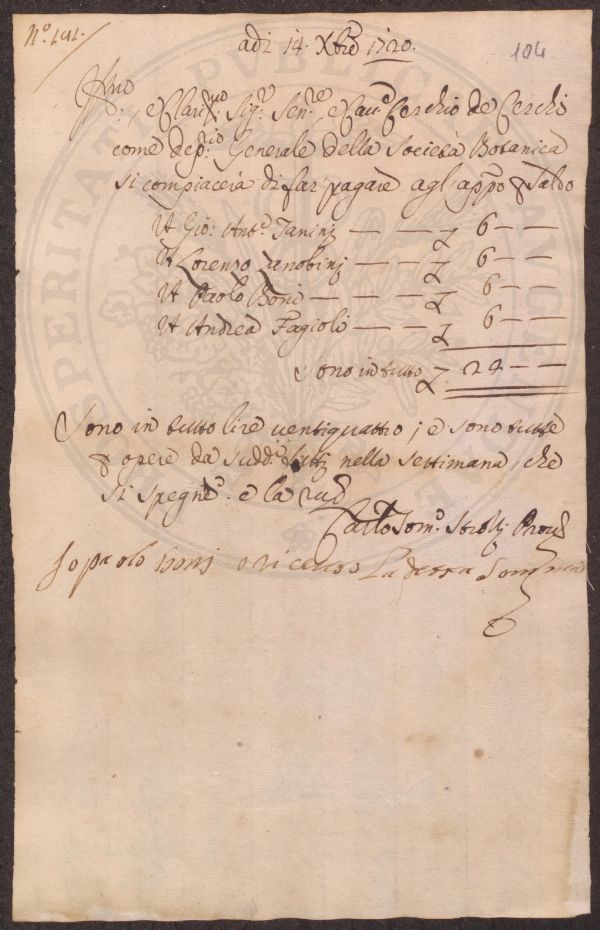 adì 14. Xbre 1720.
104
Jll.mo, e Clariss.mo Sig.r Sen.re e Cau.e Cerchio de Cerchi
come dep.rio Generale della Società Botanica
si compiacerà di far pagare agl'app.o p Saldo
A Gio: Ant.o Fanini — — 6 — —
A Lorenzo Zanobinj — — 6 — —
A Paolo Boni — — — 6 — —
A Andrea Fagioli — — 6 — —
Sono in tutto 24 — —
Sono in tutto lire uentiquattro; e sono tutte
p opere da sudd.i fatti nella settimana, che
si spegne. e la
Carlo Tom.o Strozzj Prou.re
Jo paolo bonj o riceuto La detta Somma